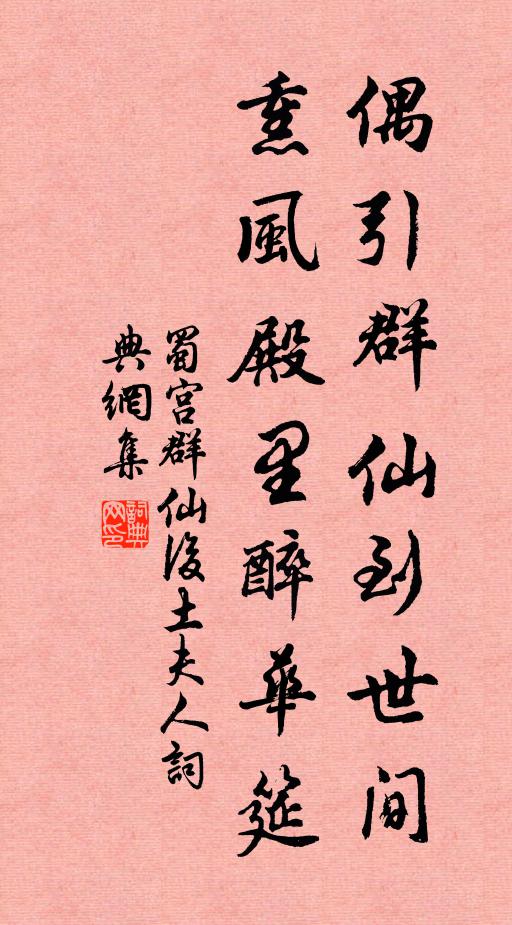 偶引群仙到世间
熏風殿里醉華筵
蜀宫群仙後土夫人詞
典網集
詞典網印